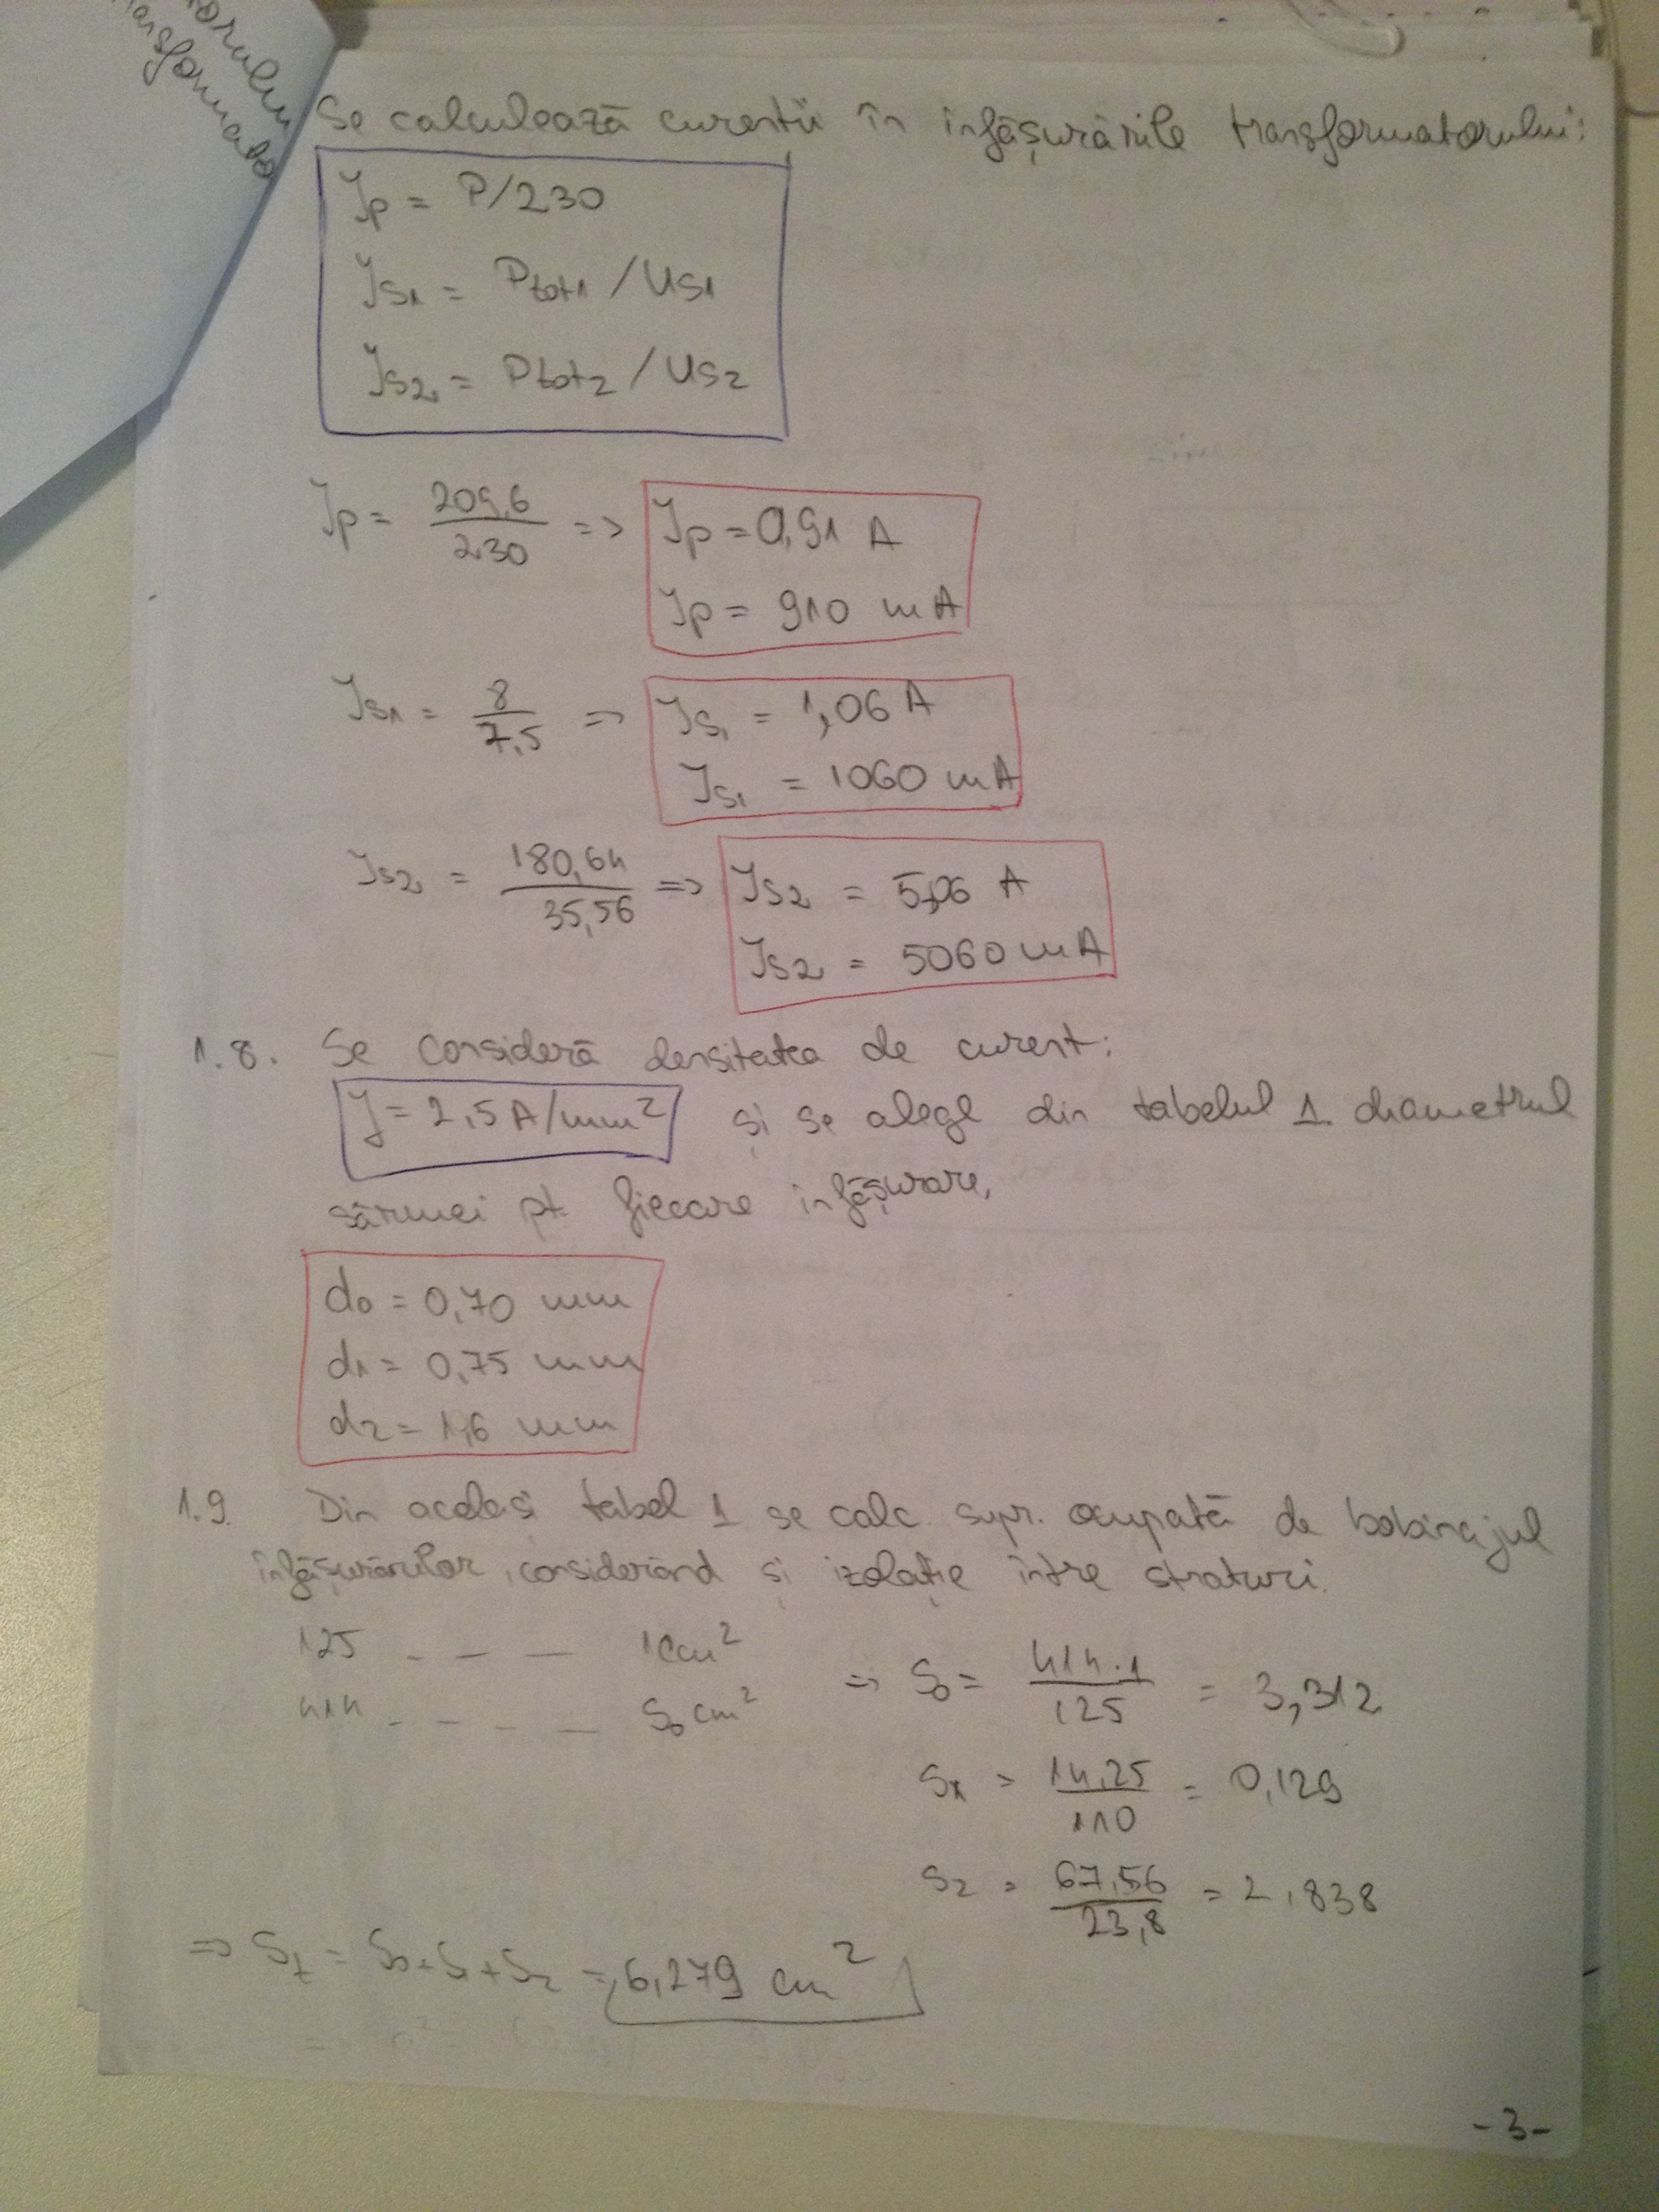 orului
ansformato
Se calculează curenții în înfășurările transformatorului:
Jp = P/230
Js1 = Ptot1 / Us1
Js2 = Ptot2 / Us2
Jp = 209,6 / 230 => Jp = 0,91 A
Jp = 910 mA
Js1 = 8 / 7,5 => Js1 = 1,06 A
Js1 = 1060 mA
Js2 = 180,64 / 35,56 => Js2 = 5,06 A
Js2 = 5060 mA
1.8. Se consideră densitatea de curent:
J = 2,5 A/mm² și se alege din tabelul 1. diametrul
sârmei pt. fiecare înfășurare,
d0 = 0,70 mm
d1 = 0,75 mm
d2 = 1,6 mm
1.9. Din același tabel 1 se calc. supr. ocupată de bobinajul
înfășurărilor, considerând și izolație între straturi.
125 - - - 1cm²
414 - - - - S0 cm² => S0 = 414.1 / 125 = 3,312
S1 = 14,25 / 110 = 0,129
S2 = 67,56 / 23,8 = 2,838
=> St = S0 + S1 + S2 = 6,279 cm²
-3-